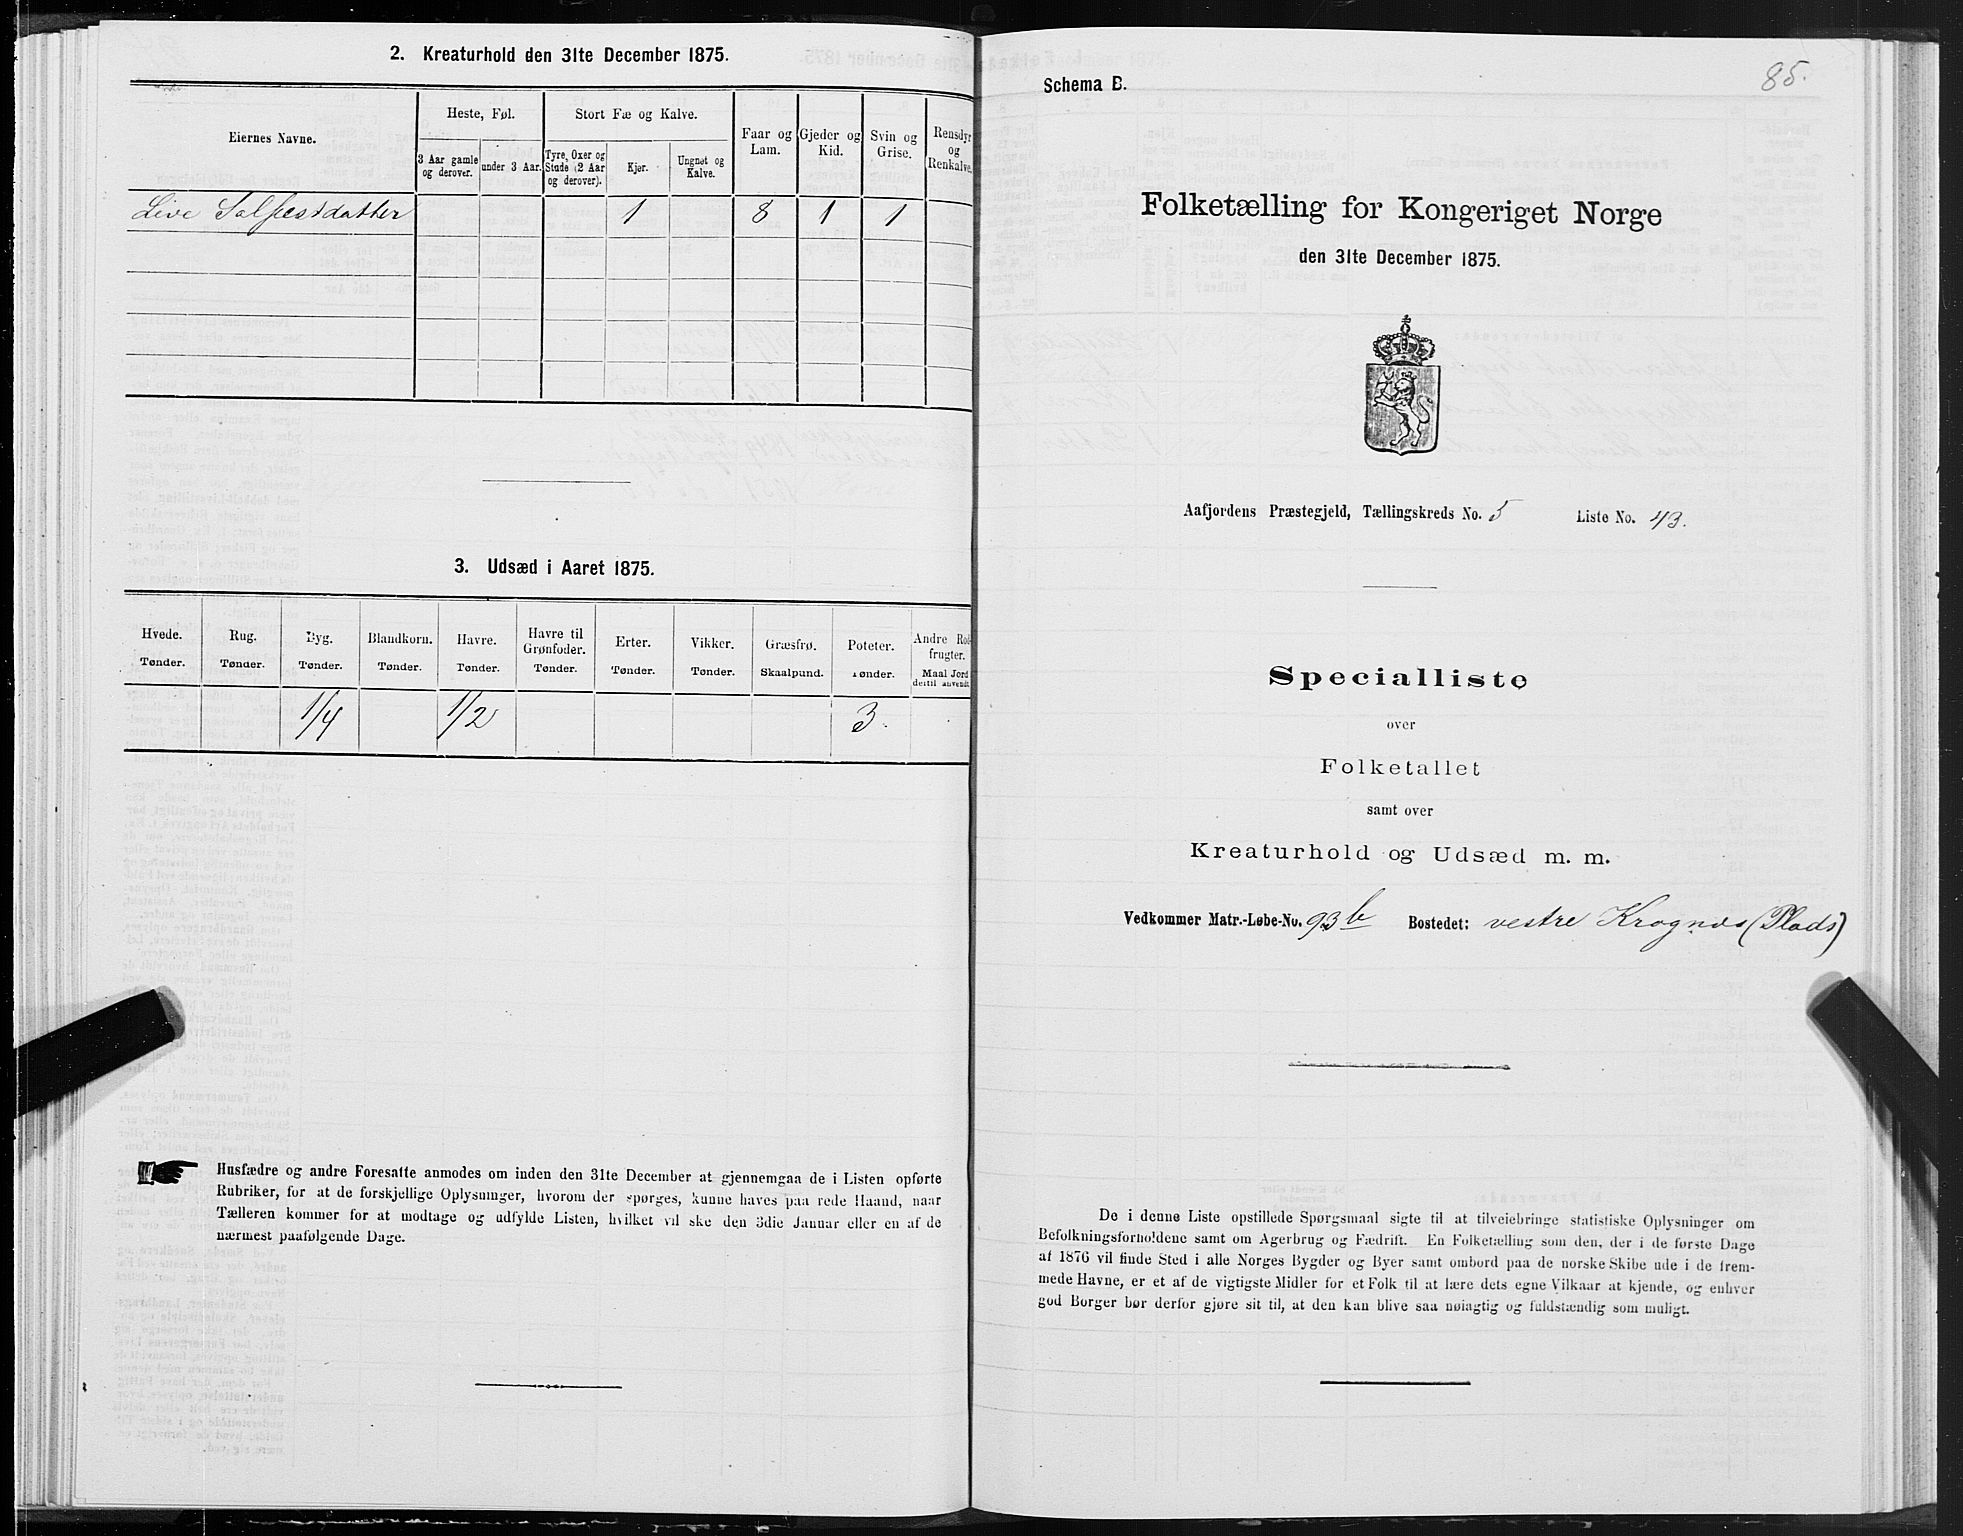 2. Kreaturhold den 31te December 1875.
Eiernes Navne.
Heste, Føl.
Stort Fæ og Kalve.
Faar og Lam.
Gjeder og Kid.
Svin og Grise.
Rensdyr og Renkalve.
3 Aar gamle og derover.
under 3 Aar.
Tyre, Oxer og Stude (2 Aar og derover).
Kjør.
Ungnøt og Kalve.
Live 1 8 1 1
3. Udsæd i Aaret 1875.
Hvede. Rug. Byg. Blandkorn. Havre. Havre til Grønfoder. Erter. Vikker. Græsfrø. Poteter. Andre Rodfrugter.
Tønder. Tønder. Tønder. Tønder. Tønder. Tønder. Tønder. Tønder. Skaalpund. Tønder. Maal Jord dertil anvendt
1/4 1/2 3.
Husfædre og andre Foresatte anmodes om inden den 31te December at gjennemgaa de i Listen opførte
Rubriker, for at de forskjellige Oplysninger, hvorom der spørges, kunne haves paa rede Haand, naar
Tælleren kommer for at modtage og udfylde Listen, hvilket vil ske den 3die Januar eller en af de
nærmest paafølgende Dage.
85.
Schema B.
Folketælling for Kongeriget Norge
den 31te December 1875.
Aafjordens Præstegjeld, Tællingskreds No. 5 Liste No. 43.
Specialliste
over
Folketallet
samt over
Kreaturhold og Udsæd m. m.
Vedkommer Matr.-Løbe-No. 93b Bostedet: vestre Krognæs (Plads)
De i denne Liste opstillede Spørgsmaal sigte til at tilveiebringe statistiske Oplysninger om
Befolkningsforholdene samt om Agerbrug og Fædrift. En Folketælling som den, der i de første Dage
af 1876 vil finde Sted i alle Norges Bygder og Byer samt ombord paa de norske Skibe ude i de frem-
mede Havne, er et af de vigtigste Midler for et Folk til at lære dets egne Vilkaar at kjende, og enhver
god Borger bør derfor gjøre sit til, at den kan blive saa nøiagtig og fuldstændig som muligt.